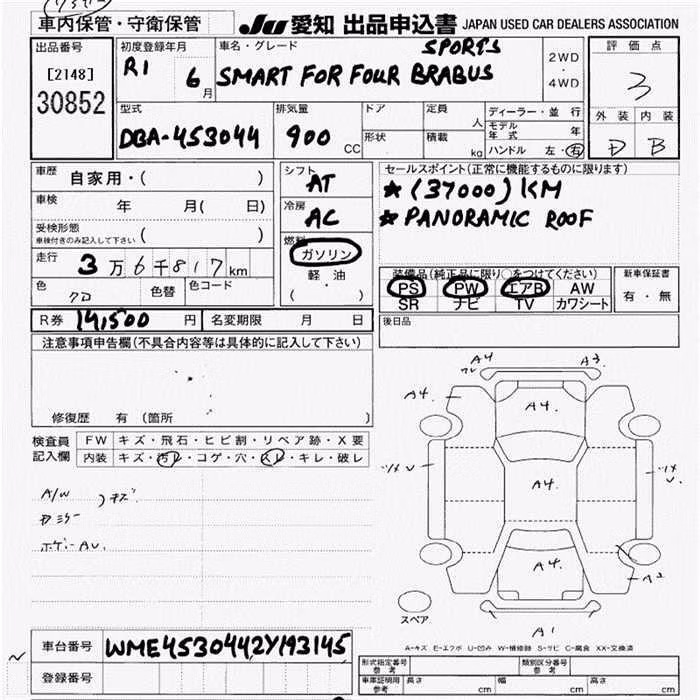 車内保管・守衛保管
JU 愛知 出品申込書 JAPAN USED CAR DEALERS ASSOCIATION
出品番号
[2148]
30852
初度登録年月
R1 6月
車名・グレード
SPORTS
SMART FOR FOUR BRABUS
2WD
・
4WD
評価点
3
外装 内装
D B
型式
DBA-453044
排気量
900 CC
ドア
定員 人
形状
積載 kg
ディーラー・並行
モデル年式 年
ハンドル 左・右
車歴 自家用・( )
車検 年 月( 日)
受検形態
車検付きのみ記入して下さい ( )
走行 3万6千817km
色 クロ 色替 色コード
シフト
AT
冷房
AC
燃料
ガソリン
軽油
( ・ )
セールスポイント(正常に機能するものに限ります)
★(37000)KM
★PANORAMIC ROOF
装備品(純正品に限り○をつけてください)
PS PW エアB AW
SR ナビ TV カワシート
新車保証書
有・無
R券 14,500円 名変期限 月 日
後日品
注意事項申告欄(不具合内容等は具体的に記入して下さい)
修復歴 有 (箇所 )
検査員記入欄
FW キズ・飛石・ヒビ割・リペア跡・X要
内装 キズ・汚レ・コゲ・穴・スレ・キレ・破レ
A/W キズ
ボデーAU
A4 A3
A4 A4
A4
A4
A2
A1
スペア
A-キズ E-エクボ U-凹み W-補修跡 S-サビ C-腐食 XX-交換済
車台番号 WME4530442Y193145
登録番号
形式指定番号 参考 類別区分番号 参考
車庫証明用 参考 長さ cm 幅 cm 高さ cm